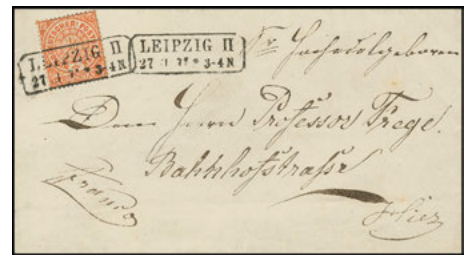 LEIPZIG II
3-4N
LEIPZIG II
27 * 3-4N
Sr Hochwolgeboren
Dem Herrn Professor Frege.
Bahnhofstraße
Franco
Hier